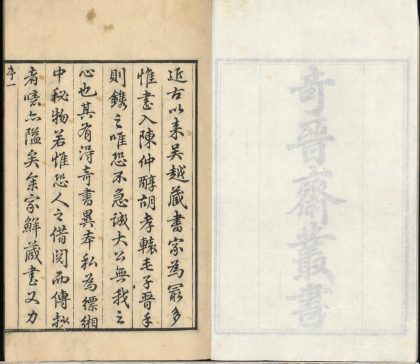 奇晉齋叢書
近古以来吴越藏書家為最多
惟書入陳仲醇胡孝轅毛子晉手
則鐫之唯恐不急誠大公無我之
心也其有得奇書異本私為縹緗
中秘物若惟恐人之借閱而傳抄
者噫亦隘矣余家鮮藏書又力
序一